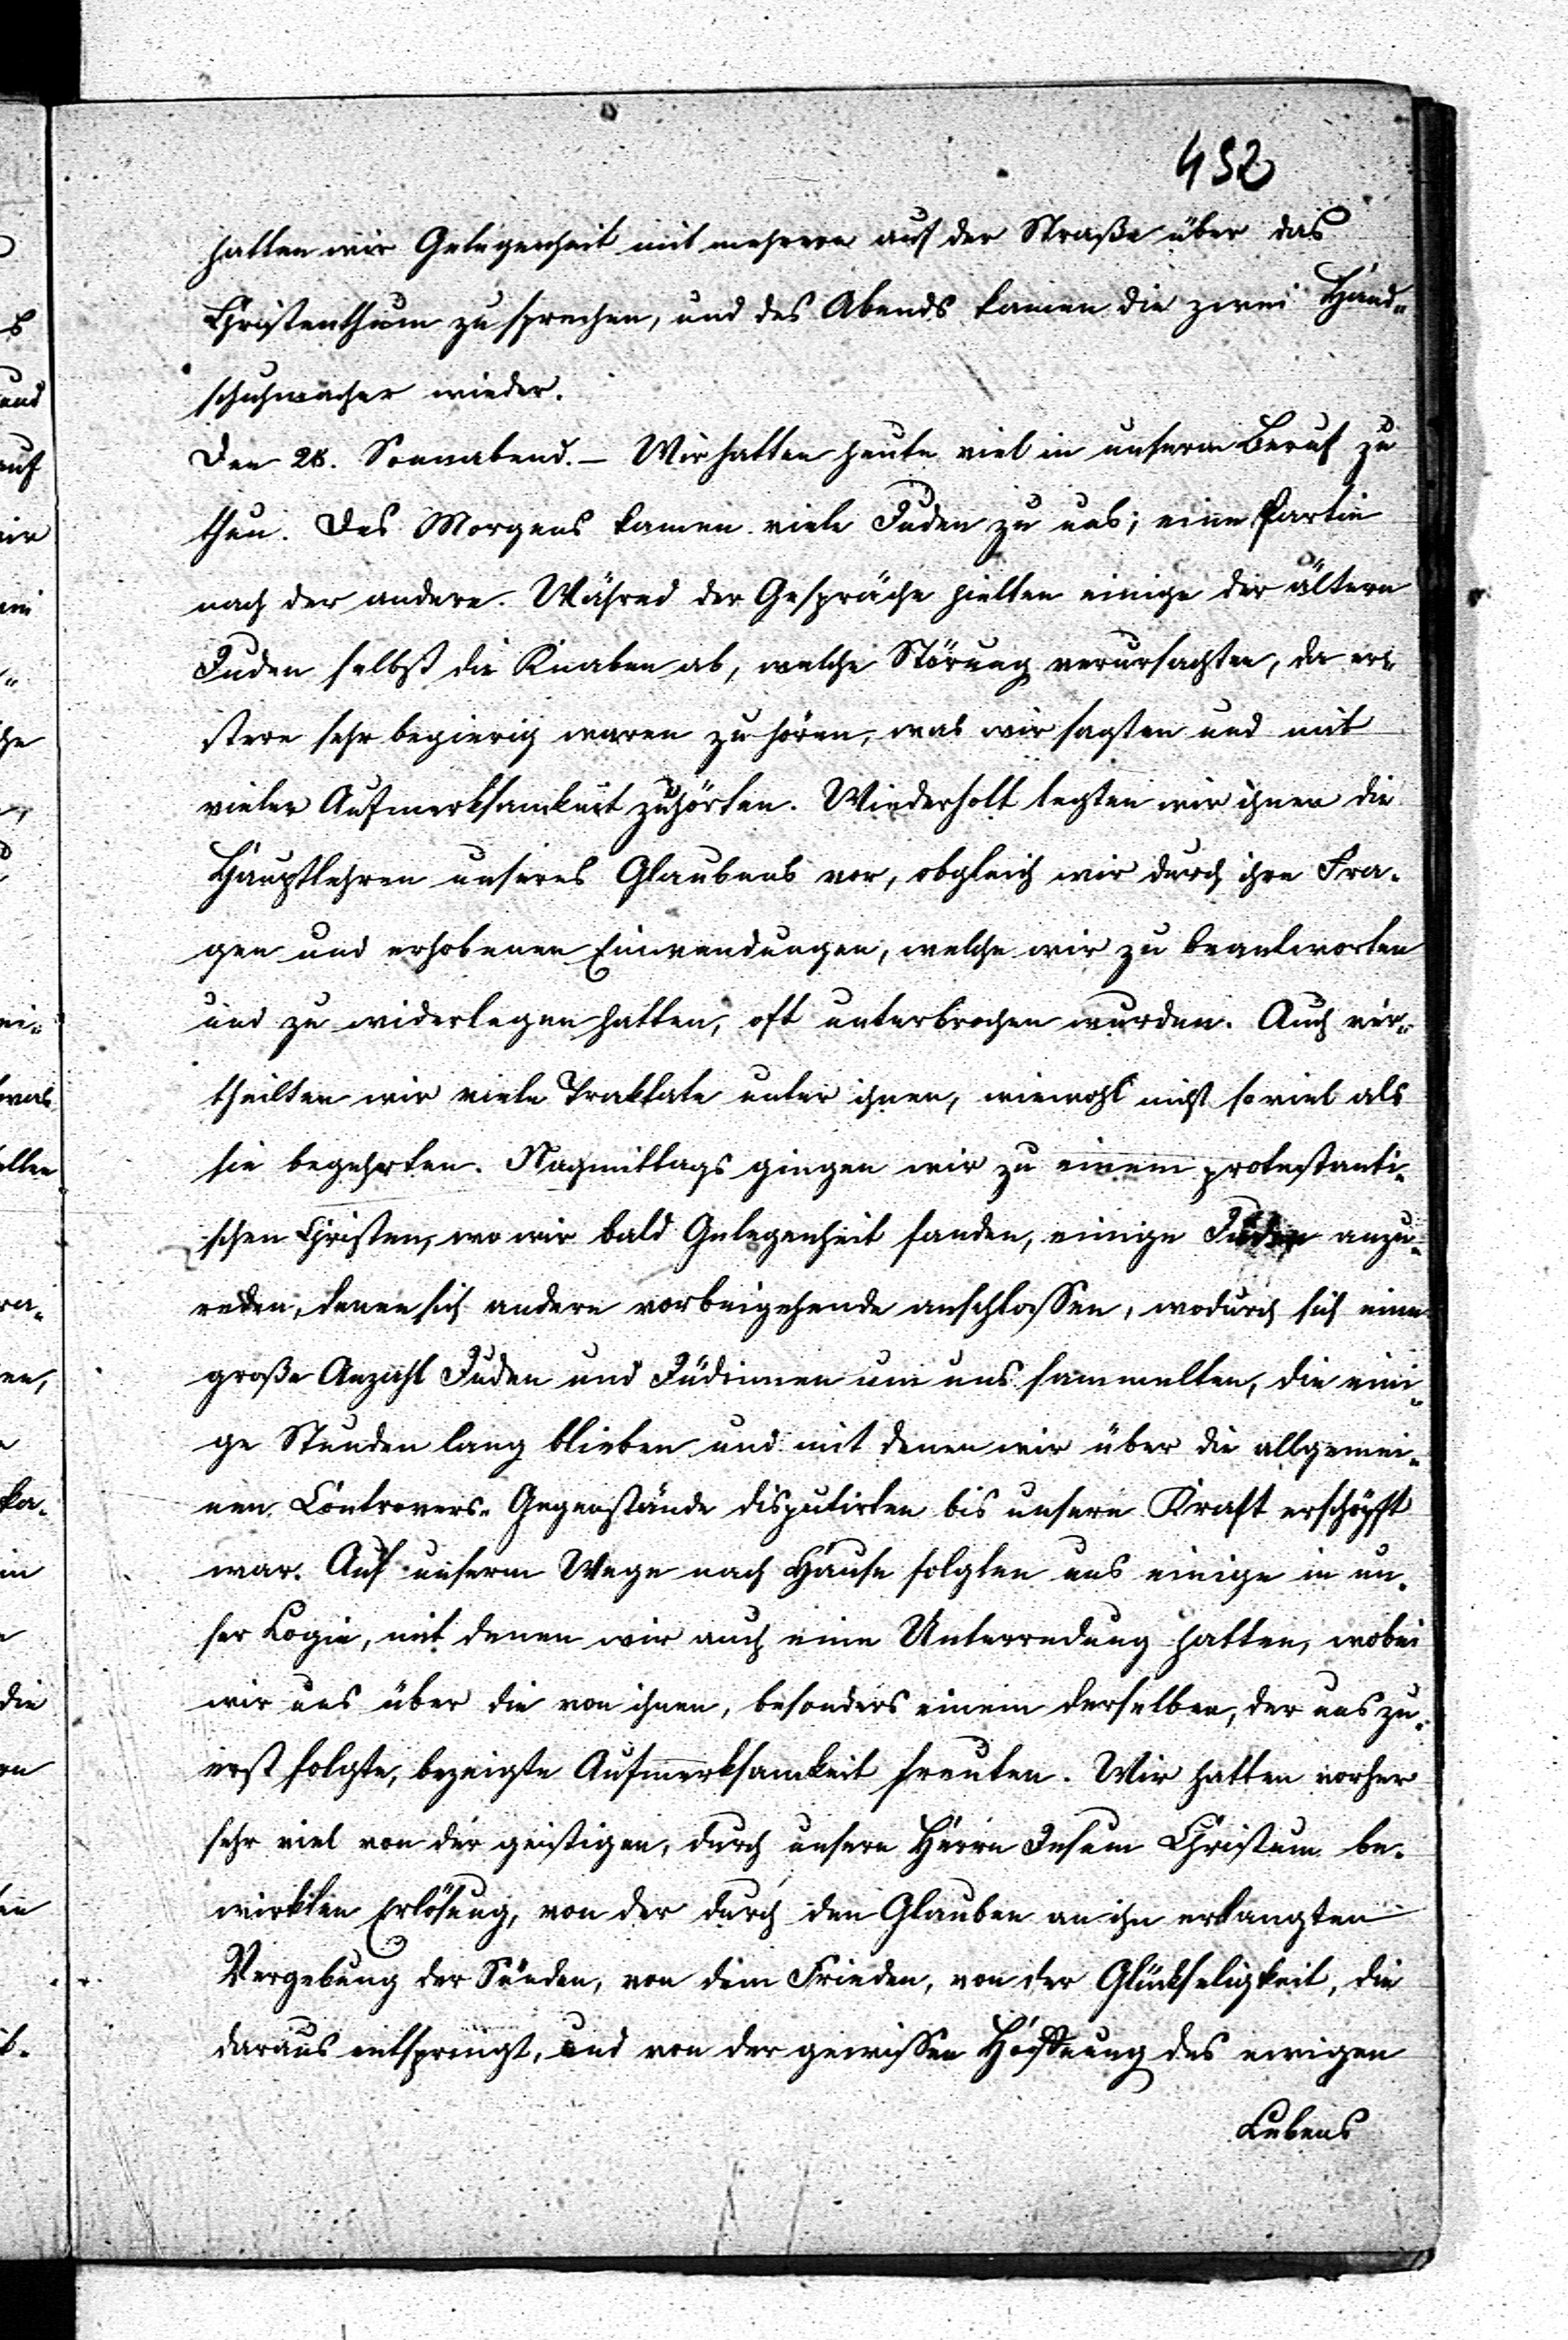 452
hatten wir Gelegenheit mit mehrern auf der Straße über das
Christenthum zu sprechen, und des Abends kamen die zwei Hand-
schuhmacher wieder.
Den 28. Sonnabend. – Wir hatten heute viel in unserm Beruf zu
thun. Des Morgens kamen viele Juden zu uns; eine Partie
nach der andern. Währed der Gespräche hielten einige der ältern
Juden selbst die Knaben ab, welche Störung verursachten, da er-
stere sehr begierig waren zu hören, was wir sagten und mit
vieler Aufmerksamkeit zuhörten. Wiederholt legten wir ihnen die
Hauptlehren unseres Glaubens vor, obgleich wir durch ihre Fra-
gen und erhobenen Einwendungen, welche wir zu beantworten
und zu widerlegen hatten, oft unterbrochen wurden. Auch ver-
theilten wir viele Traktate unter ihnen, wiewohl nicht so viel als
sie begehrten. Nachmittags gingen wir zu einem protestanti-
schen Christen, wo wir bald Gelegenheit fanden, einige Juden anzu-
reden, denen sich andere vorbeigehende anschlossen, wodurch sich eine
große Anzahl Juden und Jüdinnen um uns sammelten, die eini-
ge Stunden lang blieben und mit denen wir über die allgemei-
nen Controvers-Gegenstände disputirten bis unsere Kraft erschöpft
war. Auf unserm Wege nach Hause folgten uns einige in un-
ser Logie, mit denen wir auch eine Unterredung hatten, wobei
wir uns über die von ihnen, besonders einem derselben, der uns zu-
erst folgte, bezeigte Aufmerksamkeit freuten. Wir hatten vorher
sehr viel von der geistigen, durch unsern Herrn Jesum Christum be-
wirkten Erlösung, von der durch den Glauben an ihn erlangten
Vergebung der Sünden, von dem Frieden, von der Glückseligkeit, die
daraus entspringt, und von der gewissen Hoffnung des ewigen
Lebens